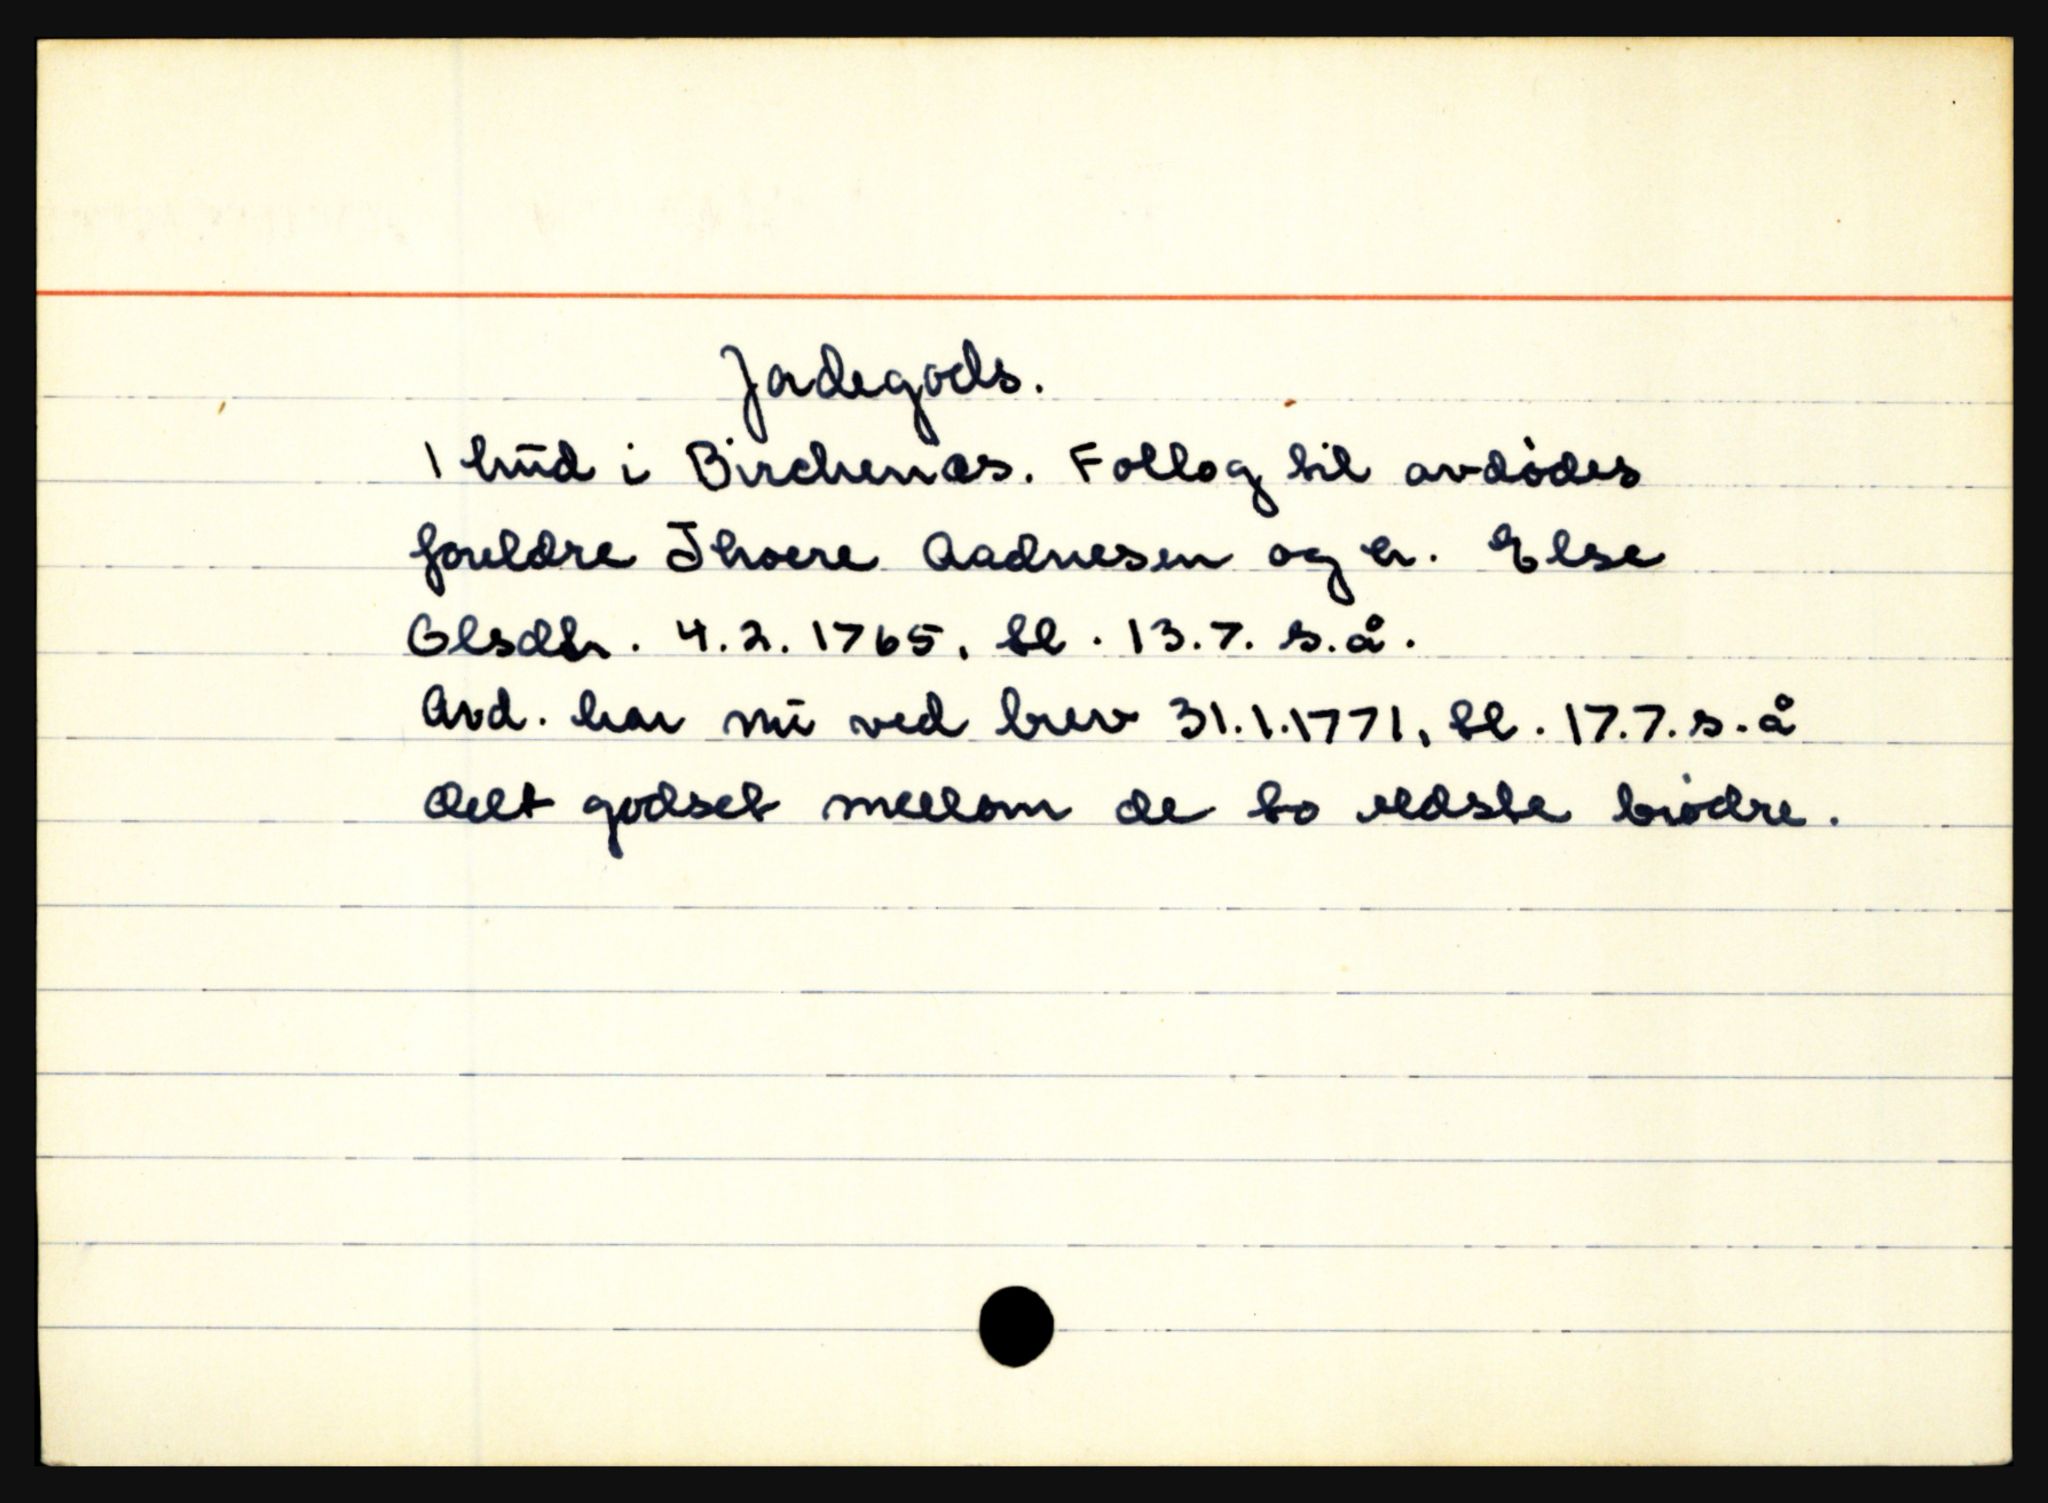 Jordegods.
1 hud i Birchenæs. Follog til avdødes
foreldre Thoere Aadnesen og h. Else
Olsdtr. 4.2.1765, tl. 13.7. s.å.
Avd. har nu ved brev 31.1.1771, tl. 17.7. s.å
delt godset mellom de to eldste brødre.